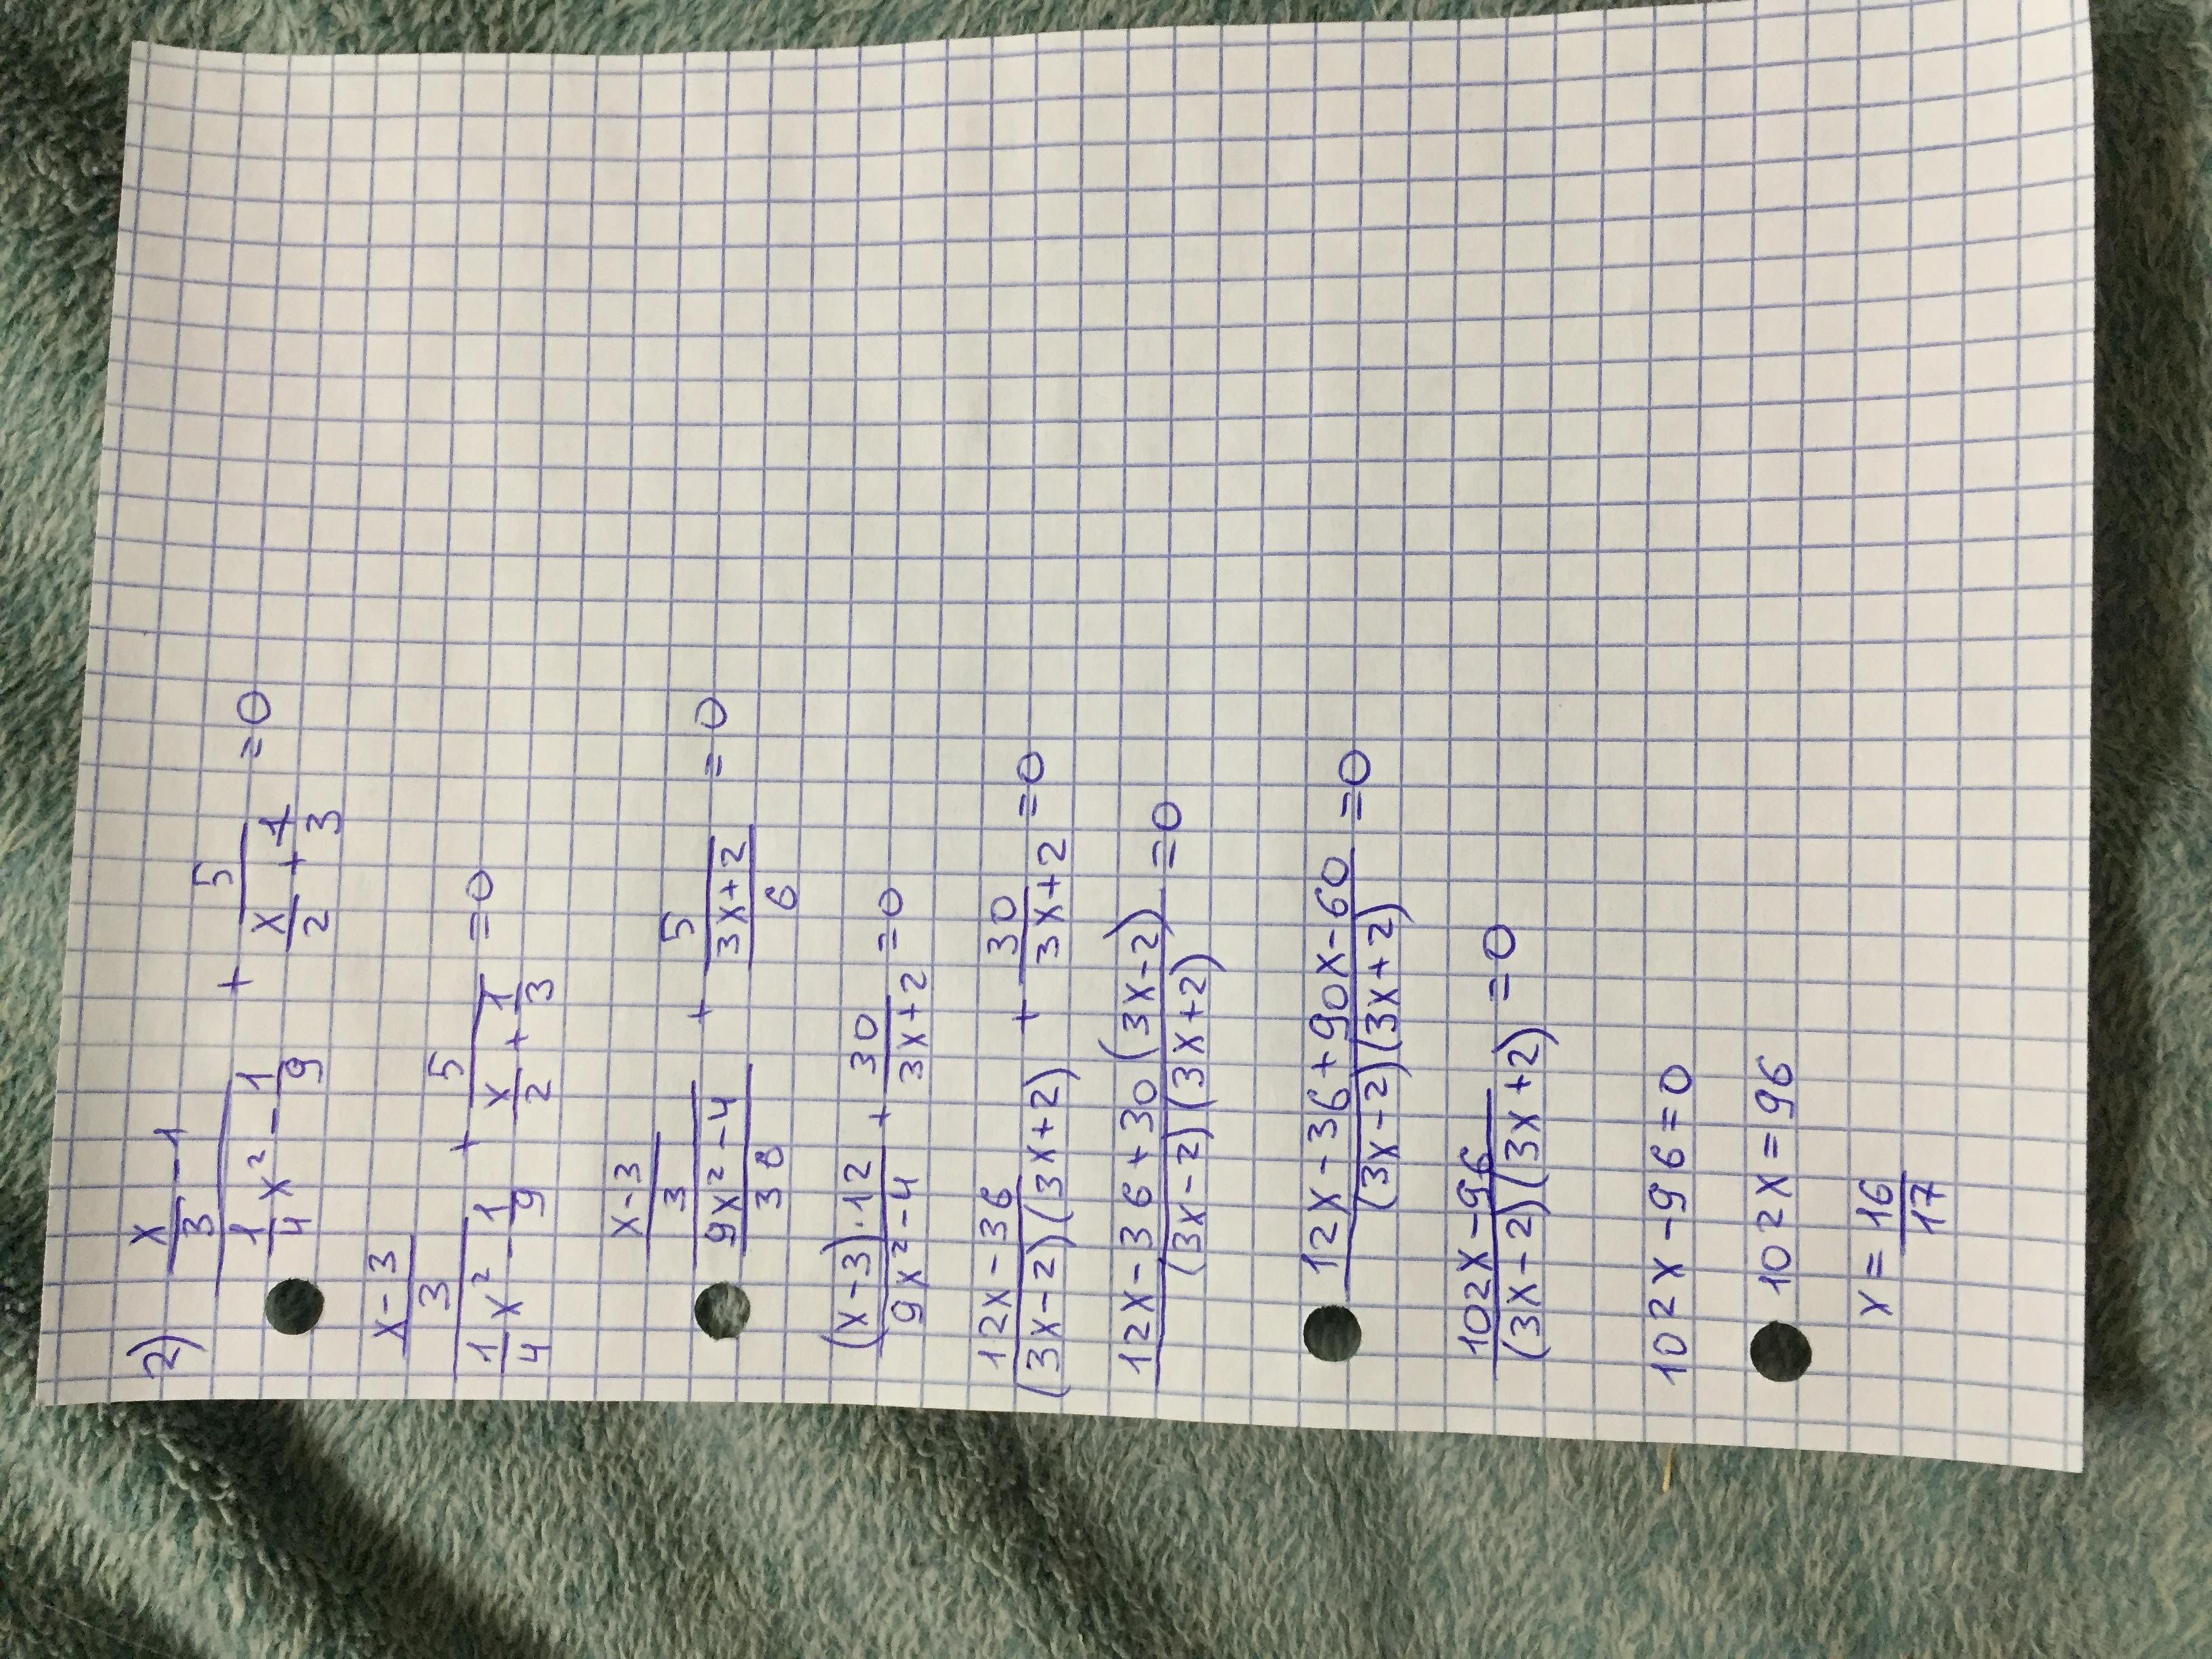 2) (x/3 - 1)/(1/4 x² - 1/9) + 5/(x/2 + 1/3) = 0
((x-3)/3)/(1/4 x² - 1/9) + 5/(x/2 + 1/3) = 0
((x-3)/3)/((9x²-4)/38) + 5/((3x+2)/6) = 0
((x-3)·12)/(9x²-4) + 30/(3x+2) = 0
(12x-36)/((3x-2)(3x+2)) + 30/(3x+2) = 0
(12x-36+30(3x-2))/((3x-2)(3x+2)) = 0
(12x-36+90x-60)/((3x-2)(3x+2)) = 0
(102x-96)/((3x-2)(3x+2)) = 0
102x-96=0
102x=96
x = 16/17